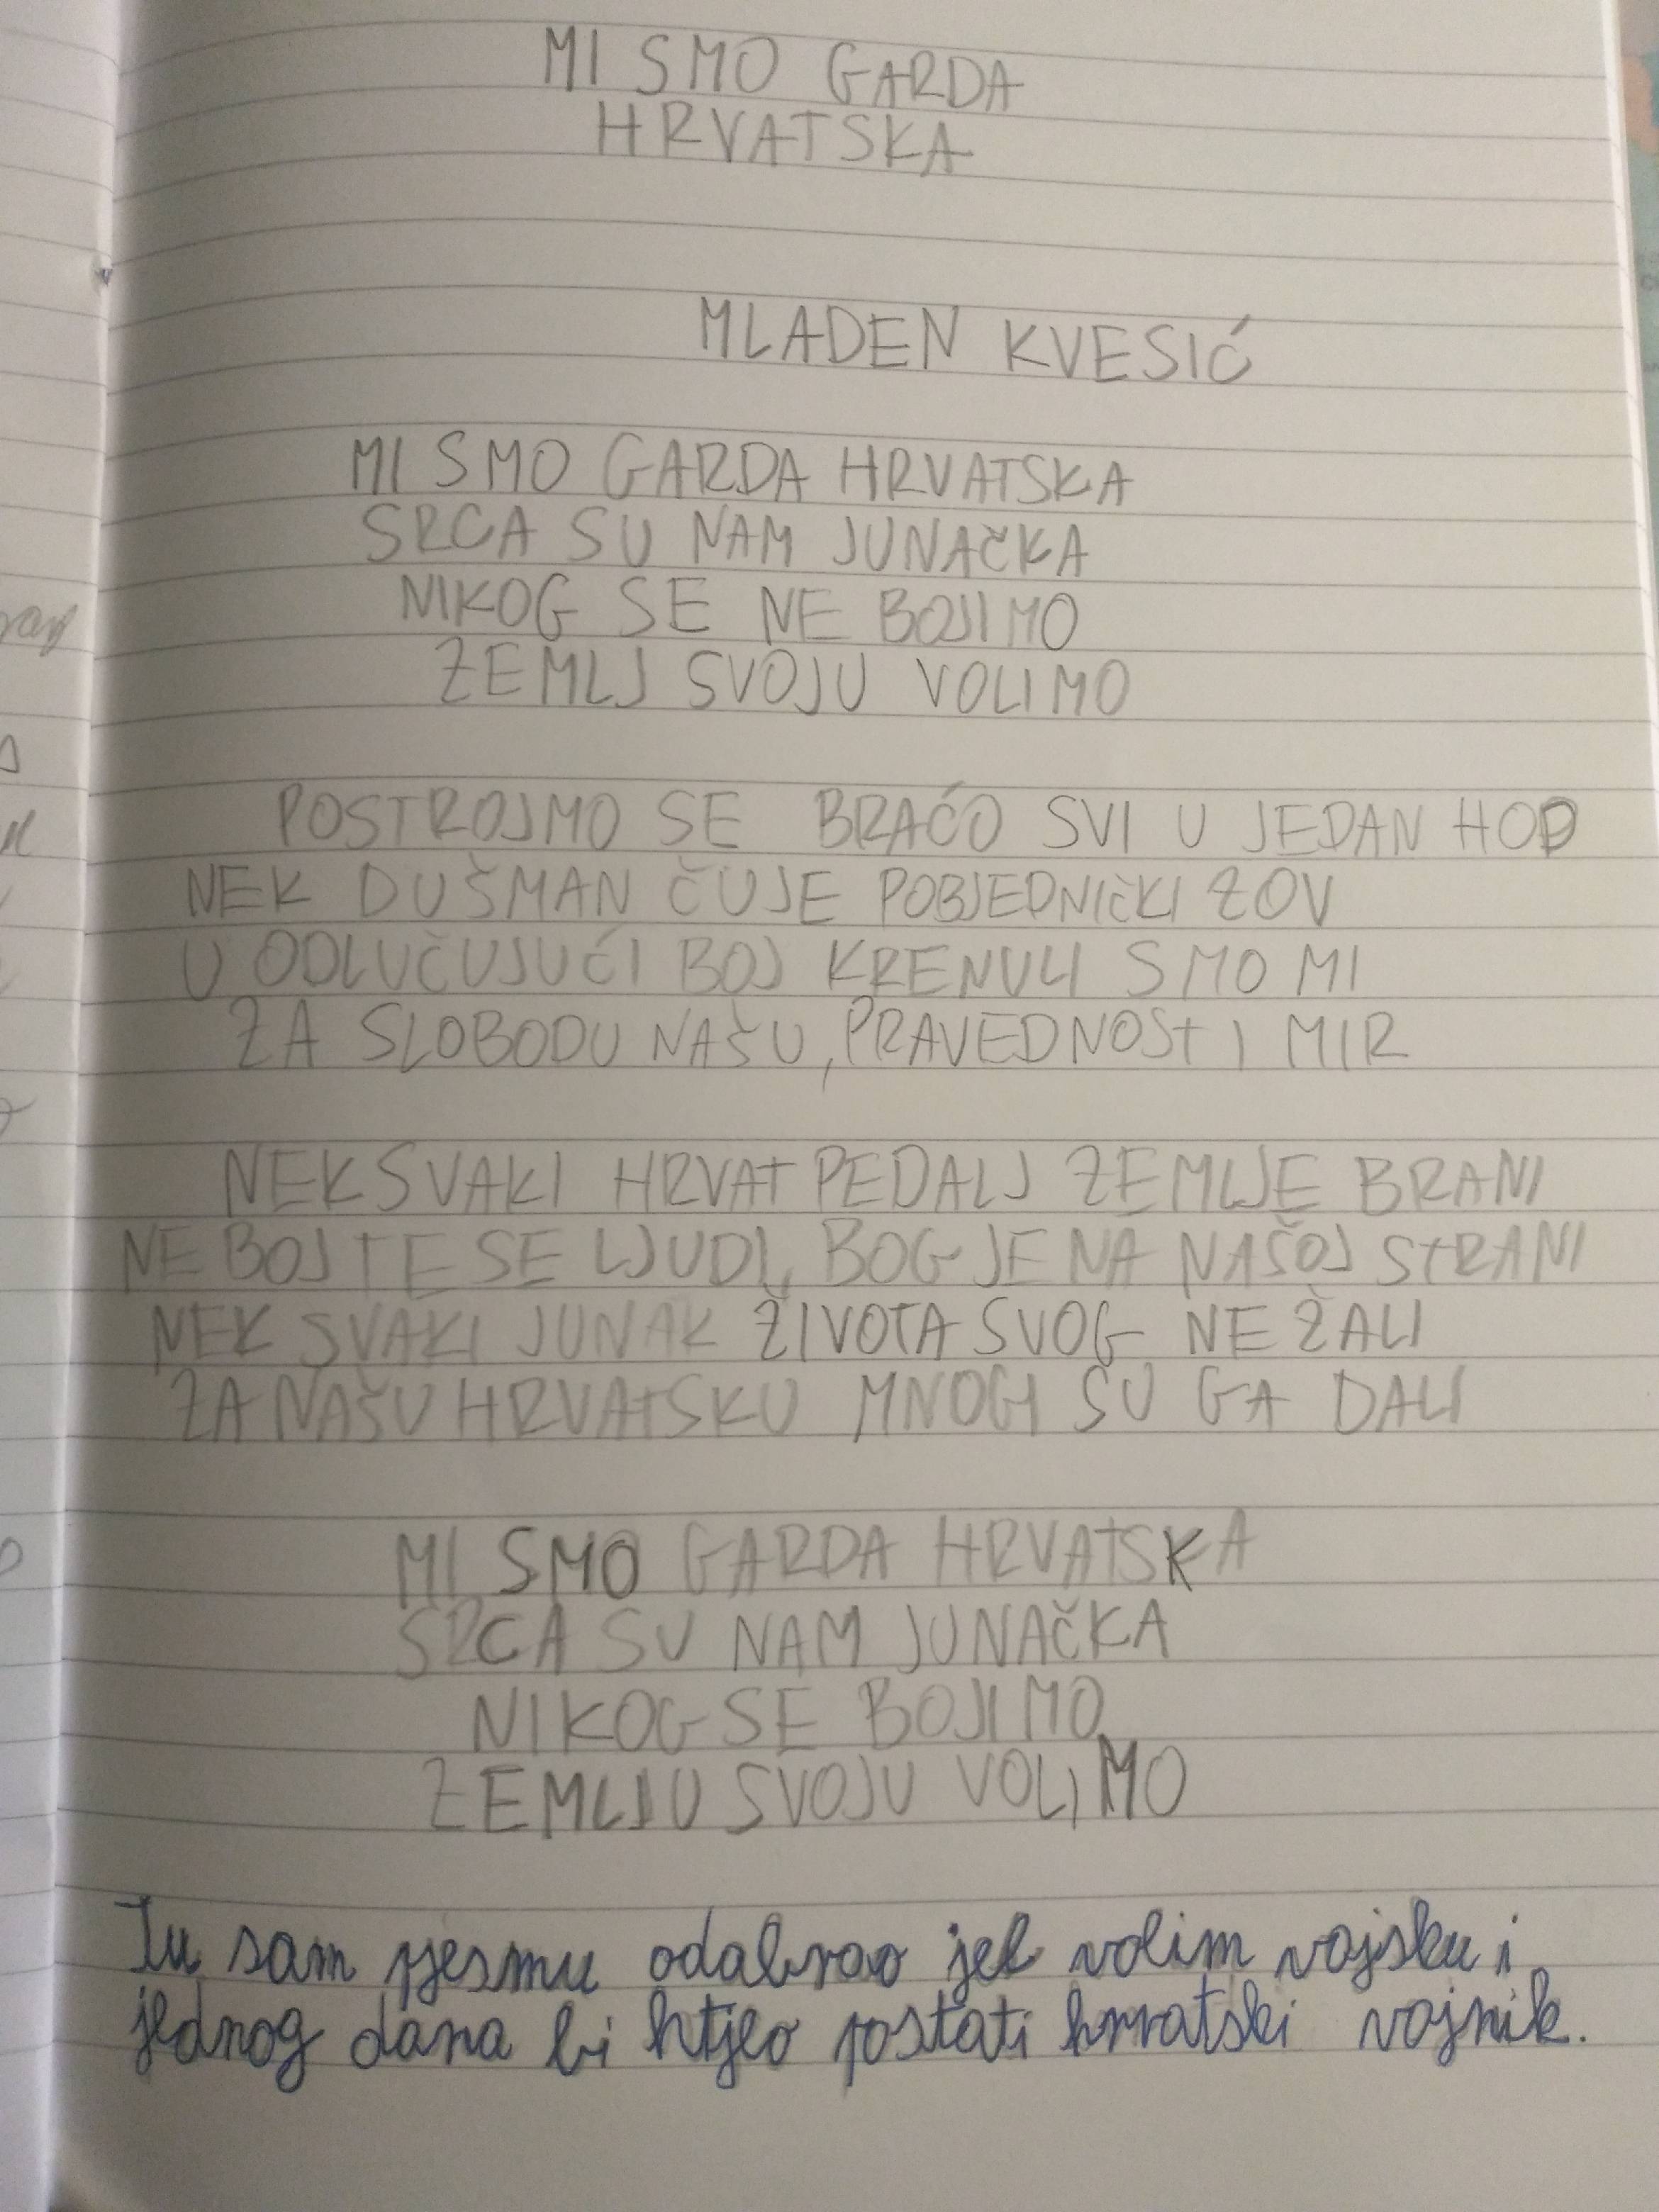 MI SMO GARDA
HRVATSKA
MLADEN KVESIĆ
MI SMO GARDA HRVATSKA
SRCA SU NAM JUNAČKA
NIKOG SE NE BOJIMO
ZEMLJ SVOJU VOLIMO
POSTROJMO SE BRAĆO SVI U JEDAN HOD
NEK DUŠMAN ČUJE POBJEDNIČKI ZOV
U ODLUČUJUĆI BOJ KRENULI SMO MI
ZA SLOBODU NAŠU, PRAVEDNOST I MIR
NEK SVAKI HRVAT PEDALJ ZEMLJE BRANI
NE BOJTE SE LJUDI, BOG JE NA NAŠOJ STRANI
NEK SVAKI JUNAK ŽIVOTA SVOG NE ŽALI
ZA NAŠU HRVATSKU MNOGI SU GA DALI
MI SMO GARDA HRVATSKA
SRCA SU NAM JUNAČKA
NIKOG SE BOJIMO
ZEMLJU SVOJU VOLIMO
Tu sam pjesmu odabrao jel volim vojsku i
jednog dana bi htjeo postati hrvatski vojnik.